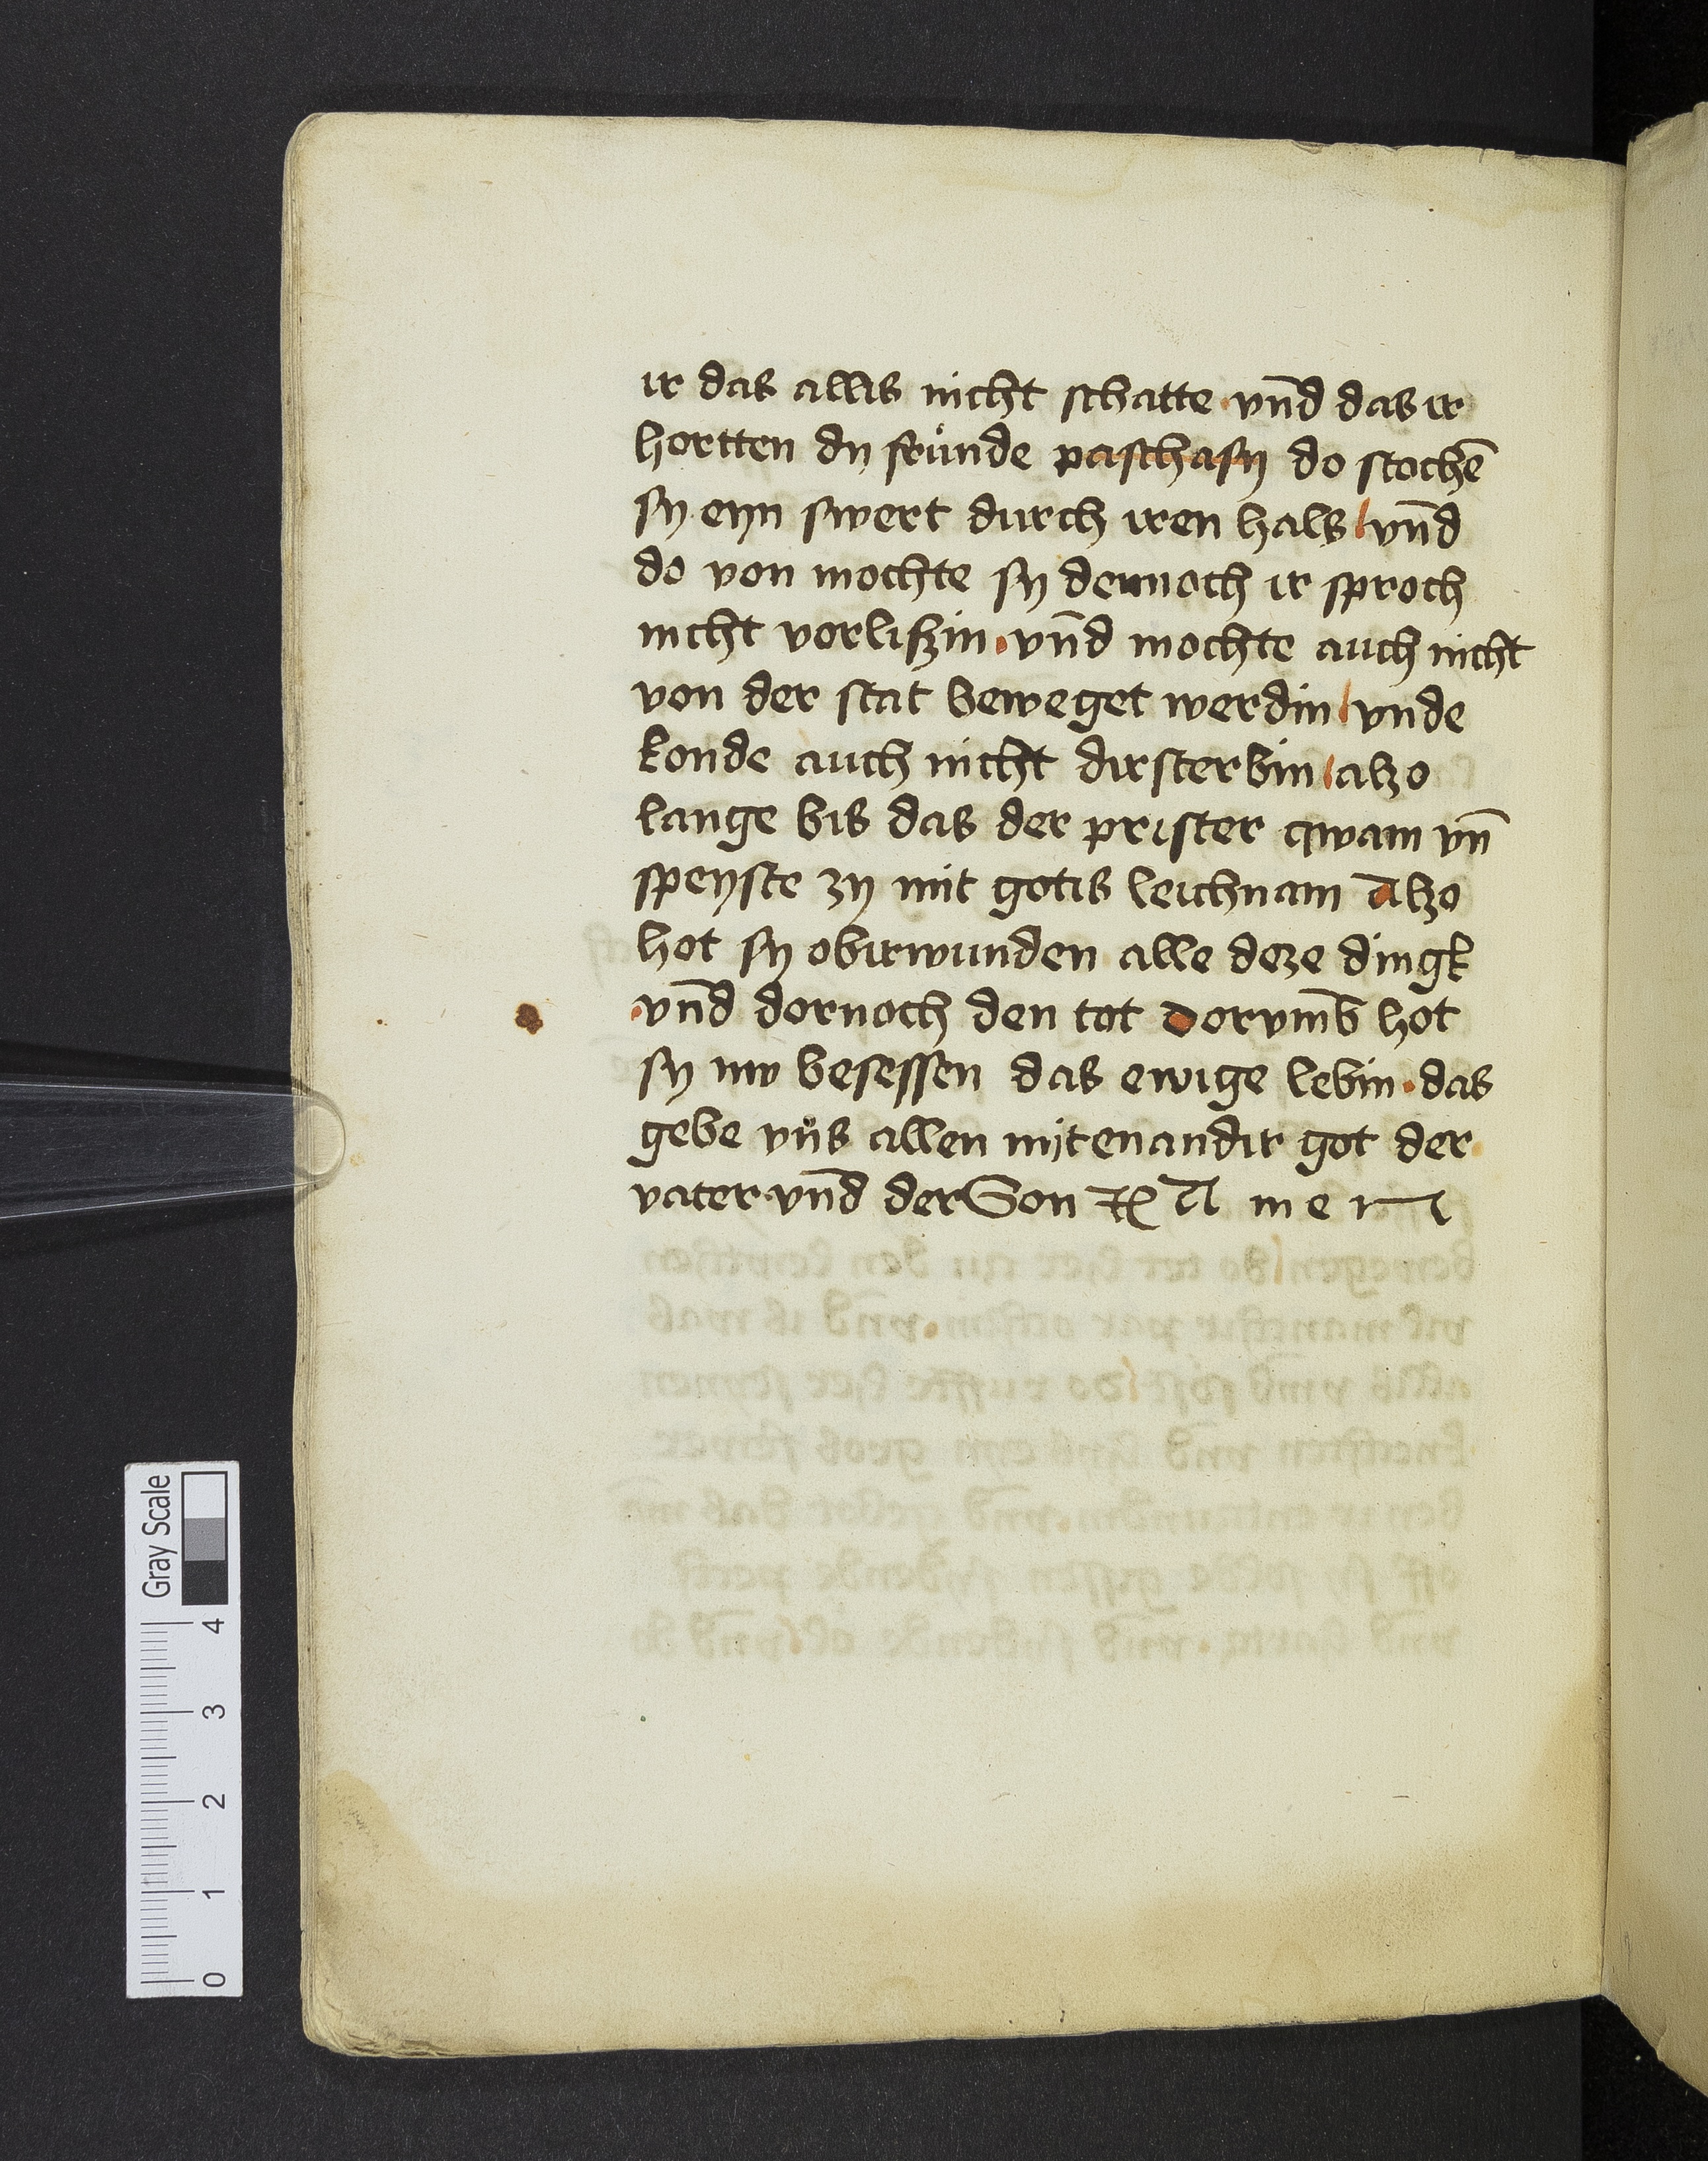 ir das allis nicht schatte · vn̄d das ir
hortten dy frunde paschasy do stochē
sy eyn swert durch iren hals / vn̄d
do von mochte sy dennoch ir sproch
nicht vorliszin · vn̄d mochte auch nicht
von der stat beweget werdin / vnde
konde auch nicht dirsterbin / alzo
lange bis das der prister qwam vn̄
speyste zy mit gotis leichnam Alzo
hot sy obirwunden alle deze dingk
vn̄d dornoch den tot Dorvmb hot
sy nw besessen das ewige lebin · das
gebe vns allen mitenandir got der
vater vn̄d der Son ꝛc A m e n
Gray Scale
0 1 2 3 4